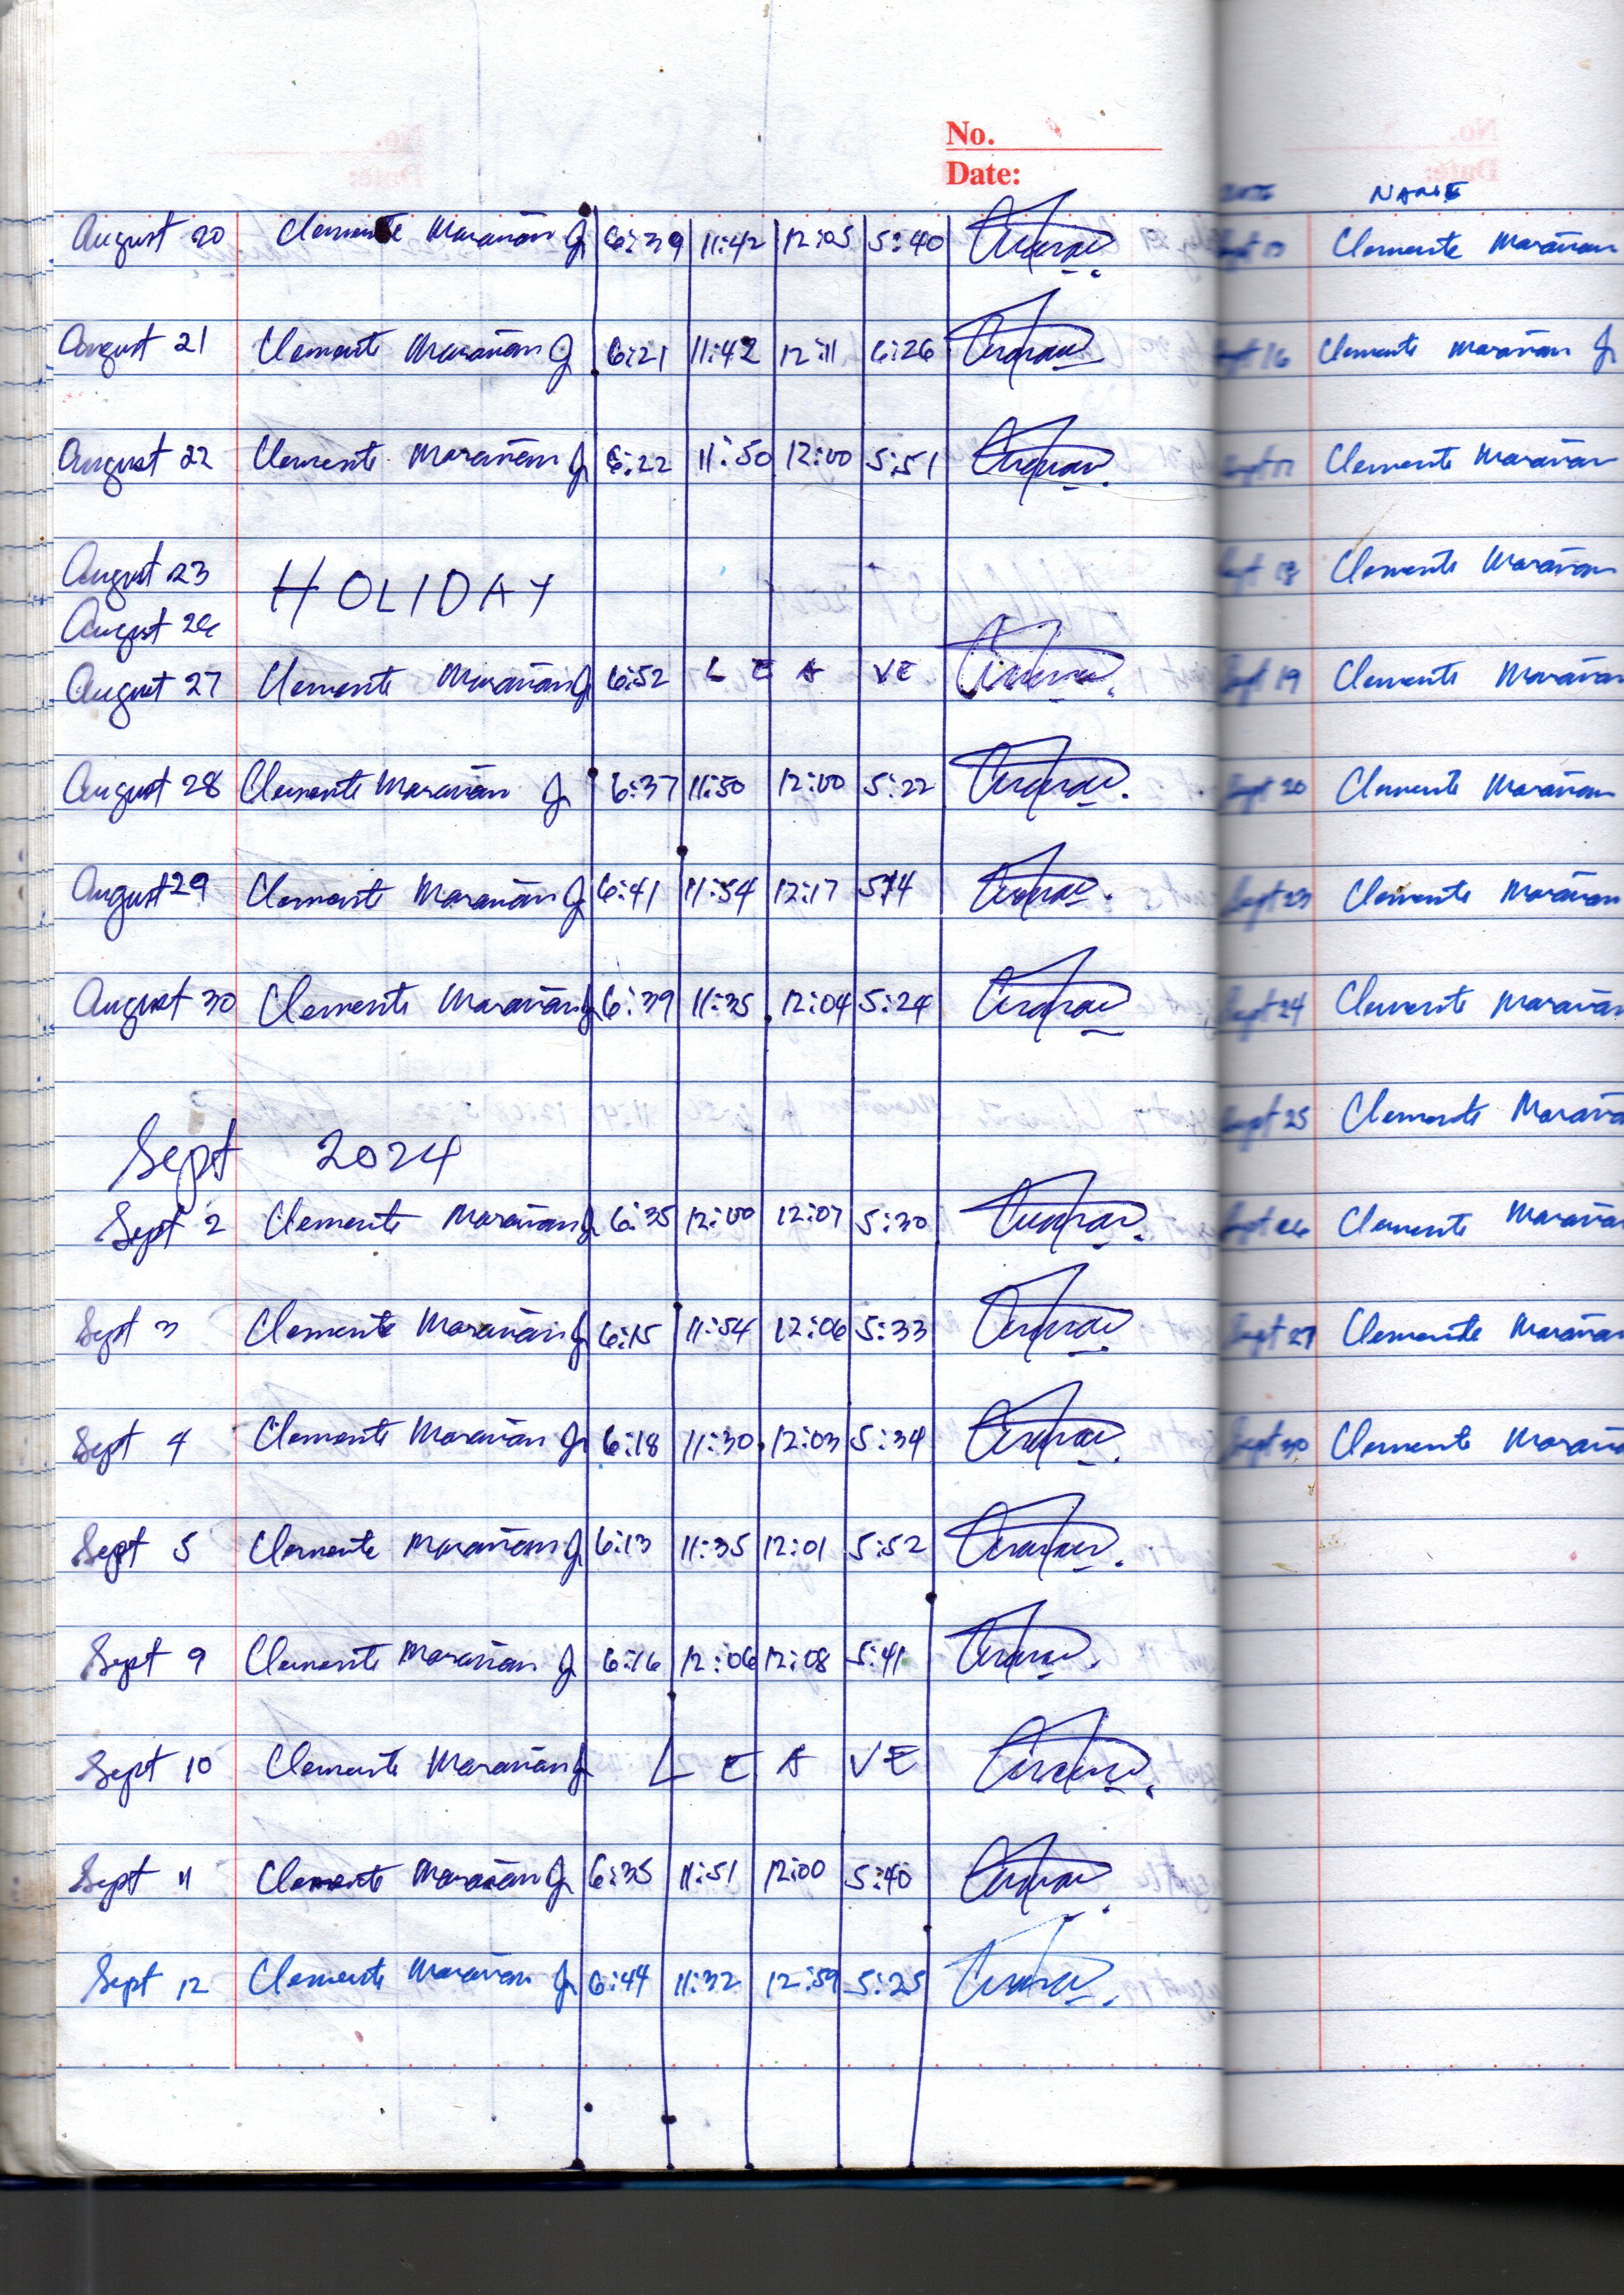 No.
Date:
August 20 Clemente Marañan Jr 6:39 11:42 12:05 5:40
August 21 Clemente Marañan Jr 6:21 11:42 12:11 6:26
August 22 Clemente Marañan Jr 6:22 11:50 12:00 5:51
August 23 HOLIDAY
August 26
August 27 Clemente Marañan Jr 6:52 L E A VE
August 28 Clemente Marañan Jr 6:37 11:50 12:00 5:22
August 29 Clemente Marañan Jr 6:41 11:54 12:17 5:14
August 30 Clemente Marañan Jr 6:39 11:35 12:04 5:24
Sept 2024
Sept 2 Clemente Marañan Jr 6:35 12:00 12:07 5:30
Sept 3 Clemente Marañan Jr 6:15 11:54 12:06 5:33
Sept 4 Clemente Marañan Jr 6:18 11:30 12:03 5:34
Sept 5 Clemente Marañan Jr 6:13 11:35 12:01 5:52
Sept 9 Clemente Marañan Jr 6:16 12:06 12:08 5:41
Sept 10 Clemente Marañan Jr L E A VE
Sept 11 Clemente Marañan Jr 6:35 11:51 12:00 5:40
Sept 12 Clemente Marañan Jr 6:44 11:32 12:59 5:25
NAME
Sept 13 Clemente Marañan
Sept 16 Clemente Marañan Jr
Sept 17 Clemente Marañan
Sept 18 Clemente Marañan
Sept 19 Clemente Marañan
Sept 20 Clemente Marañan
Sept 23 Clemente Marañan
Sept 24 Clemente Marañan
Sept 25 Clemente Maraña
Sept 26 Clemente Maraña
Sept 27 Clemente Marañan
Sept 30 Clemente Maraña